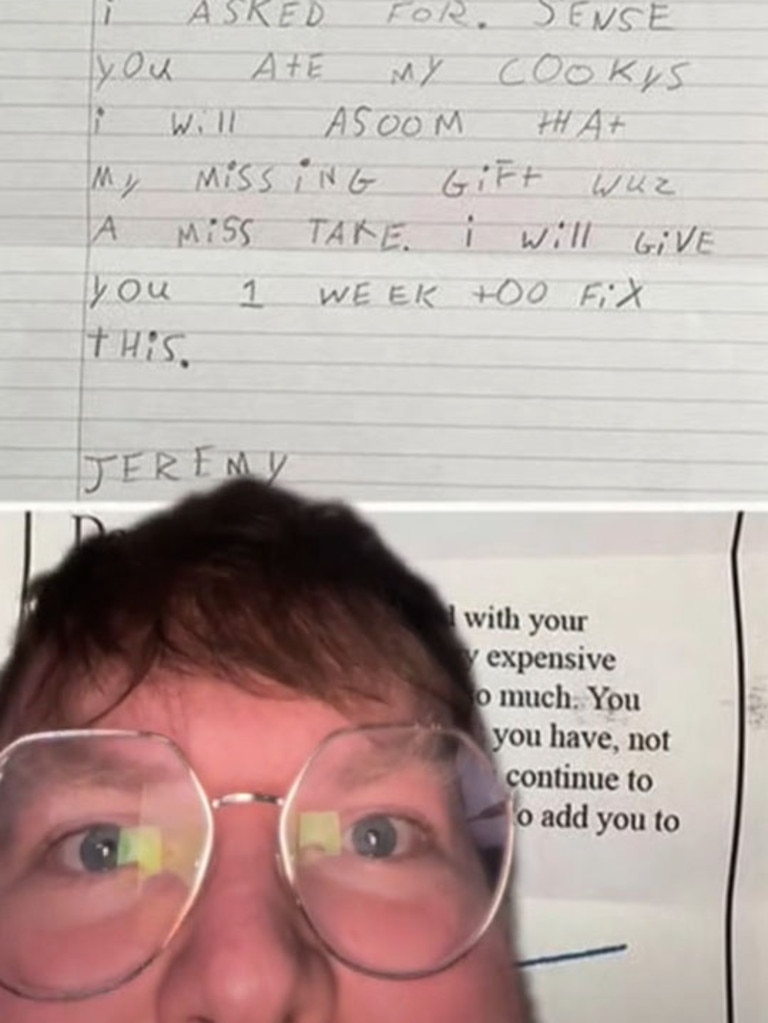 i ASKED FOR. SENSE
you AtE MY COOKyS
i Will ASOOM tHAt
My MiSSiNG GiFt WuZ
A MiSS TAKE. i Will GiVE
you 1 WEEK tOO FiX
tHiS.
JEREMY
with your
expensive
much. You
you have, not
continue to
add you to